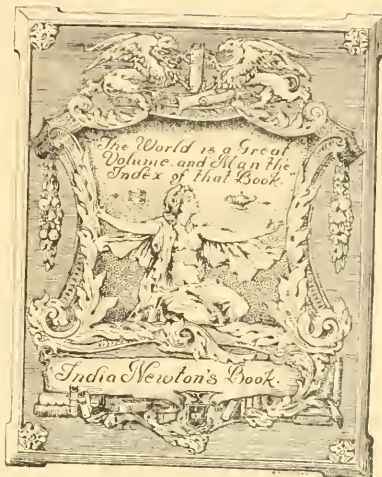 The World is a Great
Volume and Man the
Index of that Book."
India Newton's Book.